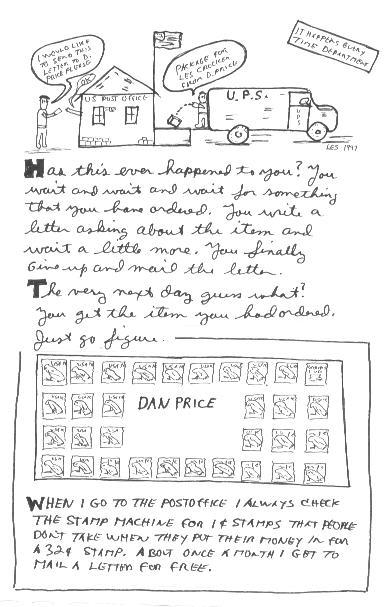 I WOULD LIKE
TO SEND THIS
LETTER TO D.
PRICE PLEASE
OK
PACKAGE FOR
LES CROCKER
FROM D. PRICE
IT HAPPENS EVERY
TIME DEPARTMENT
US POST OFFICE
U.P.S.
UPS
LES 1997
Has this ever happened to you? You
wait and wait and wait for something
that you have ordered. You write a
letter asking about the item and
wait a little more. You finally
Give up and mail the letter.
The very next day guess what?
You get the item you had ordered.
Just go figure.
DAN PRICE
WHEN I GO TO THE POSTOFFICE I ALWAYS CHECK
THE STAMP MACHINE FOR 1¢ STAMPS THAT PEOPLE
DON'T TAKE WHEN THEY PUT THEIR MONEY IN FOR
A 32¢ STAMP. ABOUT ONCE A MONTH I GET TO
MAIL A LETTER FOR FREE.